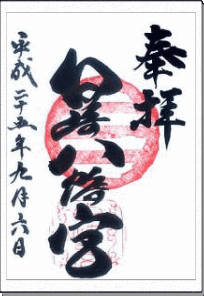 奉拝
白崎八幡宮
平成二十五年九月六日